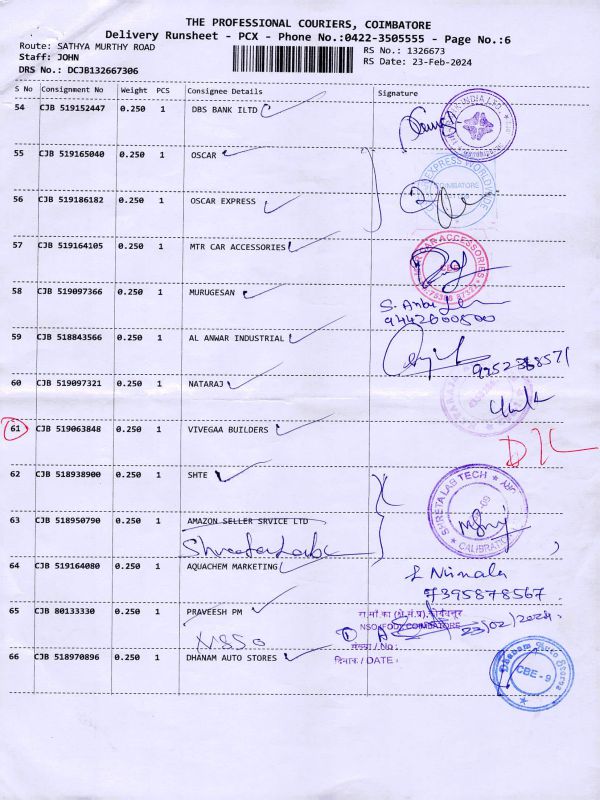 THE PROFESSIONAL COURIERS, COIMBATORE
Delivery Runsheet - PCX - Phone No.:0422-3505555 - Page No.:6
Route: SATHYA MURTHY ROAD RS No.: 1326673
Staff: JOHN RS Date: 23-Feb-2024
DRS No.: DCJB132667306
S No Consignment No Weight PCS Consignee Details Signature
54 CJB 519152447 0.250 1 DBS BANK ILTD
55 CJB 519165040 0.250 1 OSCAR
56 CJB 519186182 0.250 1 OSCAR EXPRESS
57 CJB 519164105 0.250 1 MTR CAR ACCESSORIES
58 CJB 519097366 0.250 1 MURUGESAN
9442600500
59 CJB 518843566 0.250 1 AL ANWAR INDUSTRIAL
60 CJB 519097321 0.250 1 NATARAJ
61 CJB 519063848 0.250 1 VIVEGAA BUILDERS
D/L
62 CJB 518938900 0.250 1 SHTE
SHRETA LAB TECH
CALIBRATION
63 CJB 518950790 0.250 1 AMAZON SELLER SRVICE LTD
64 CJB 519164080 0.250 1 AQUACHEM MARKETING
L Nirmala
7395878567
65 CJB 80133330 0.250 1 PRAVEESH PM
NSSO
NSO (FOD) COIMBATORE
23/02/2024
संख्या / No :
दिनांक / DATE :
66 CJB 518970896 0.250 1 DHANAM AUTO STORES
Dhanam Auto Stores
CBE - 9